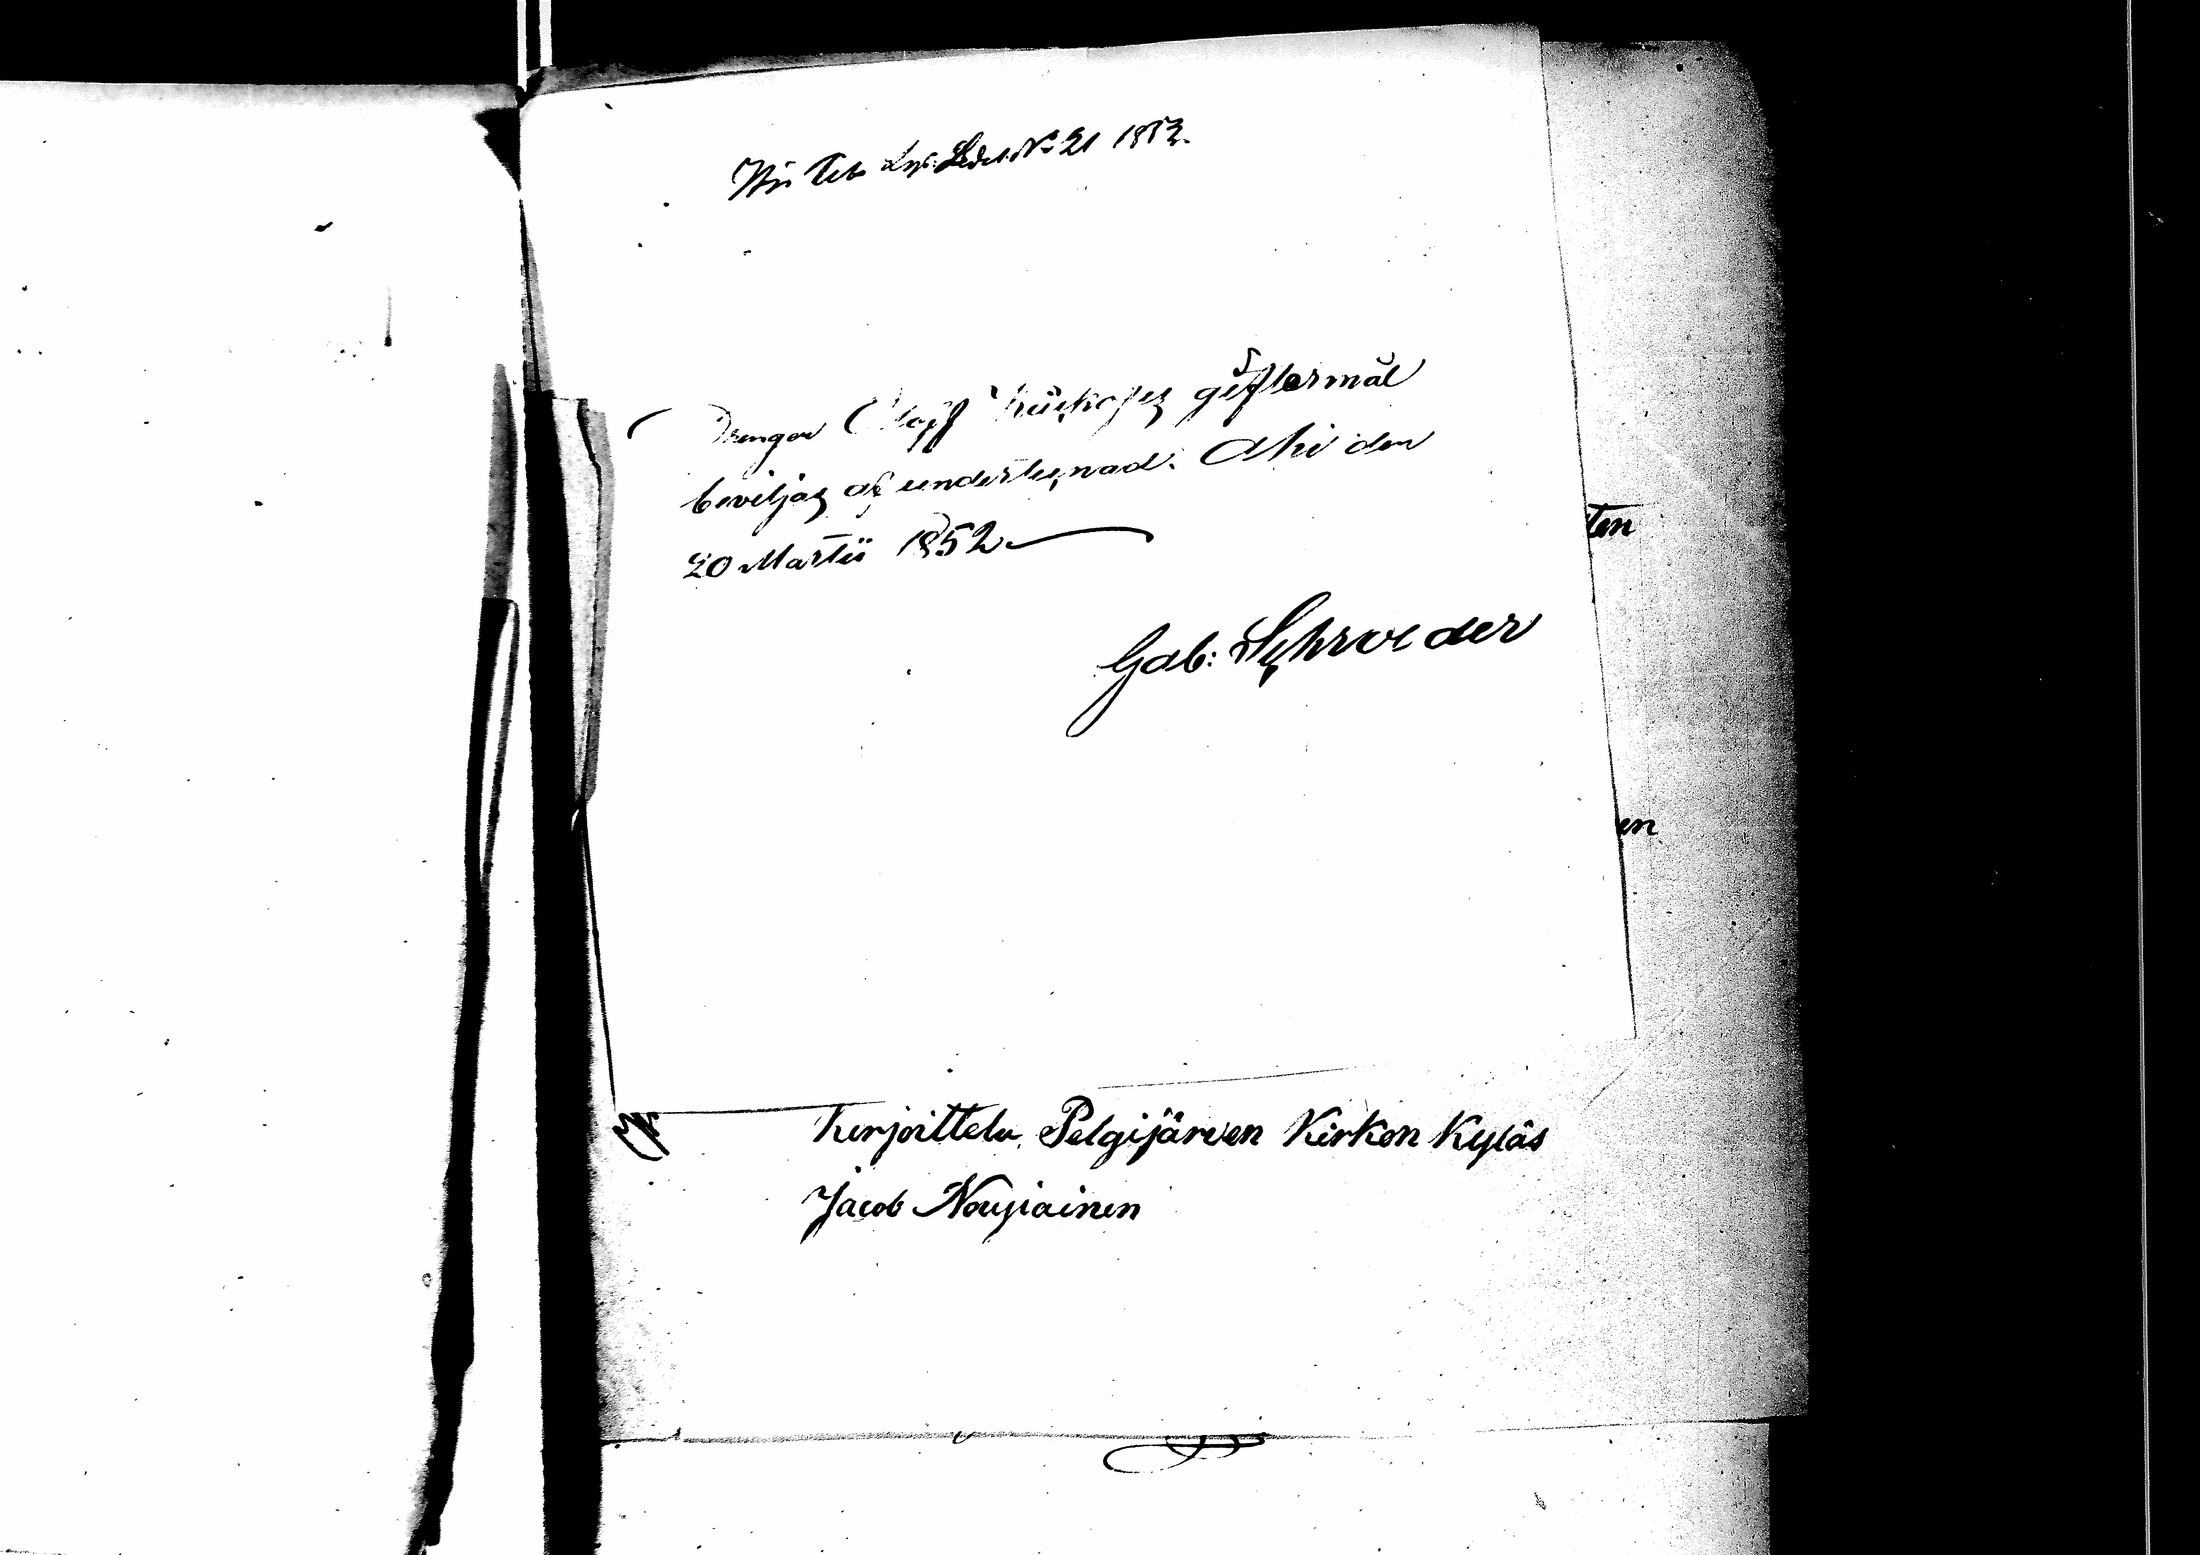 Lys. Sedel. No 21 1853.
Drengen Olaff giftermål
beviljas af undertecknad. Ahi den
20 Martii 1852
Gab: Schroeder
ten
en
Kirjoittelu Pelgijärven Kirkon Kyläs
Jacob Nouyiainen